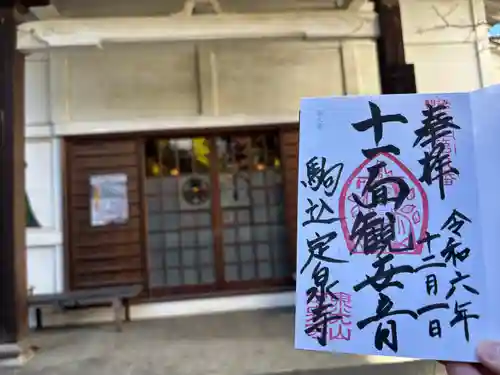 奉拝
令和六年
十二月一日
十一面観世音
駒込定泉寺